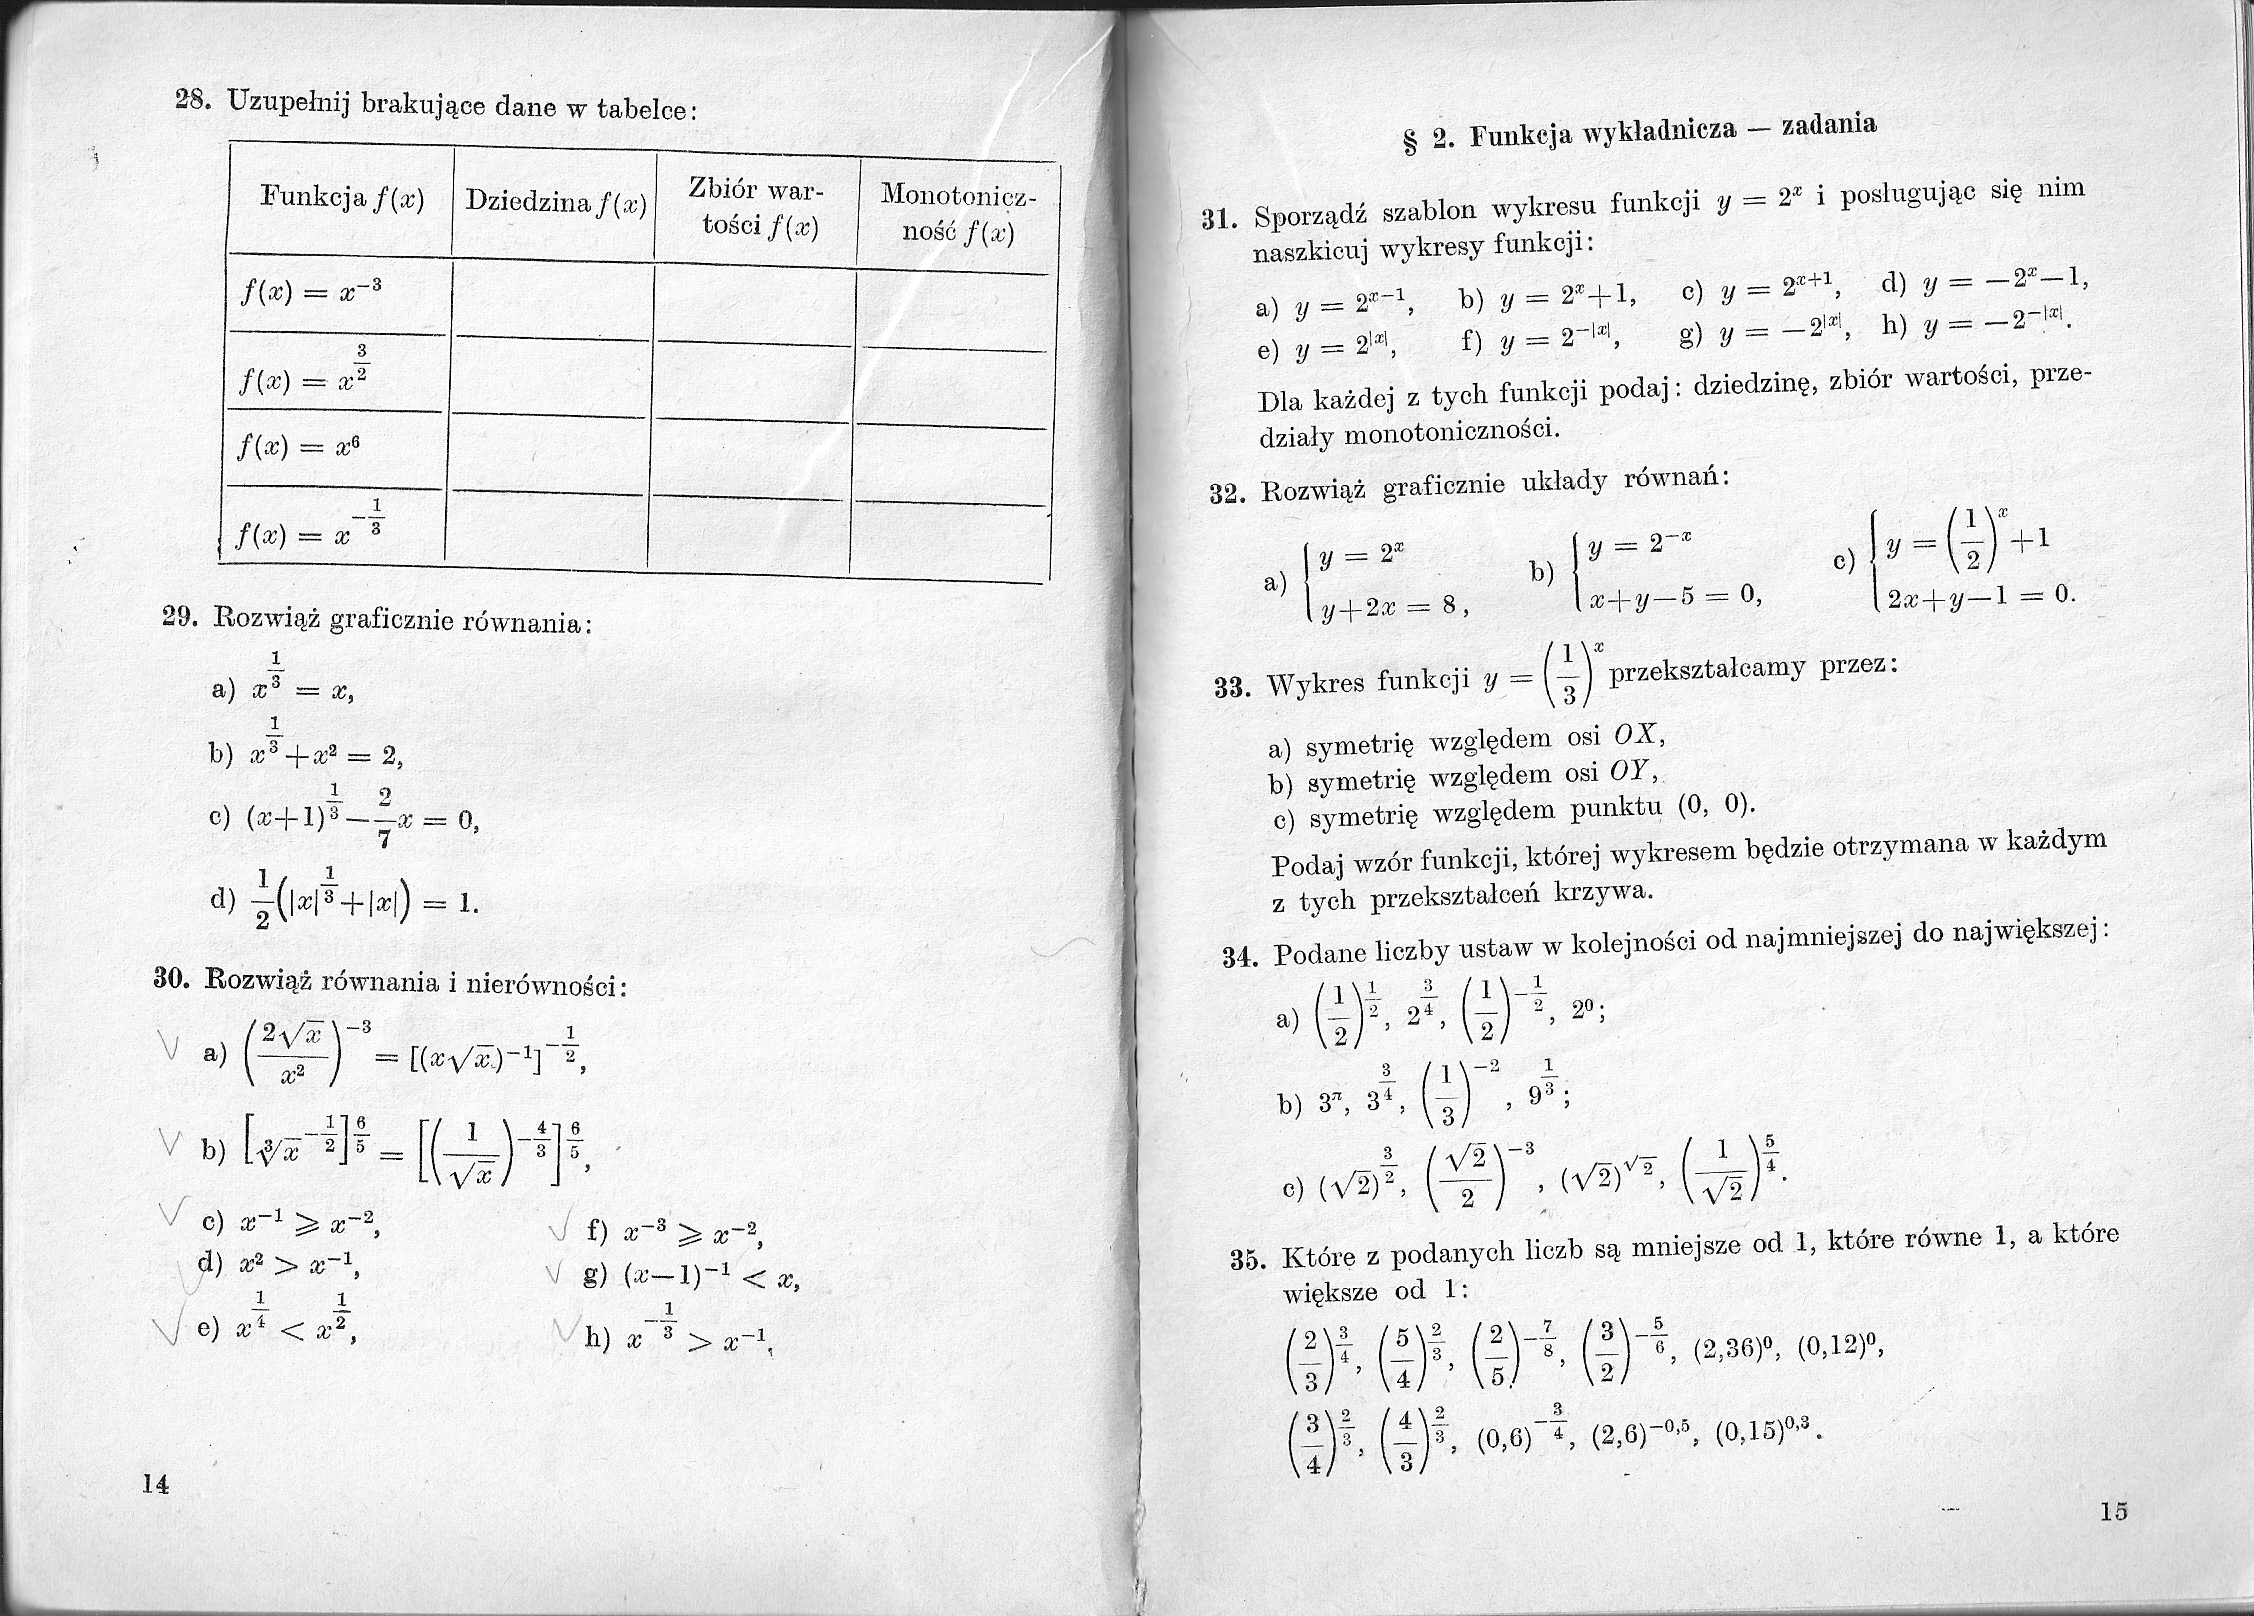 28. Uzupełnij brakujące dane w tabelce:
Funkcja f(x) | Dziedzina f(x) | Zbiór war-tości f(x) | Monotonicz-ność f(x)
f(x) = x⁻³
f(x) = x^(3/2)
f(x) = x⁶
f(x) = x^(-1/3)
29. Rozwiąż graficznie równania:
a) x^(1/3) = x,
b) x^(1/3)+x² = 2,
c) (x+1)^(1/3) — 2/7 x = 0,
d) 1/2(|x|^(1/3)+|x|) = 1.
30. Rozwiąż równania i nierówności:
a) (2√x / x²)^(-3) = [(x√x)⁻¹]^(-1/2),
b) [∛x^(-1/2)]^(6/5) = [(1/√x)^(-4/3)]^(6/5),
c) x⁻¹ ⩾ x⁻²,
d) x² > x⁻¹,
e) x^(1/4) < x^(1/2),
f) x⁻³ ⩾ x⁻²,
g) (x—1)⁻¹ < x,
h) x^(-1/3) > x⁻¹.
14
§ 2. Funkcja wykładnicza — zadania
31. Sporządź szablon wykresu funkcji y = 2^x i posługując się nim
naszkicuj wykresy funkcji:
a) y = 2^(x-1), b) y = 2^x+1, c) y = 2^(x+1), d) y = —2^x—1,
e) y = 2^|x|, f) y = 2^(-|x|), g) y = —2^|x|, h) y = —2^(-|x|).
Dla każdej z tych funkcji podaj: dziedzinę, zbiór wartości, prze-
działy monotoniczności.
32. Rozwiąż graficznie układy równań:
a) { y = 2^x b) { y = 2^(-x) c) { y = (1/2)^x+1
y+2x = 8, x+y—5 = 0, 2x+y—1 = 0.
33. Wykres funkcji y = (1/3)^x przekształcamy przez:
a) symetrię względem osi OX,
b) symetrię względem osi OY,
c) symetrię względem punktu (0, 0).
Podaj wzór funkcji, której wykresem będzie otrzymana w każdym
z tych przekształceń krzywa.
34. Podane liczby ustaw w kolejności od najmniejszej do największej:
a) (1/2)^(1/2), 2^(3/4), (1/2)^(-1/2), 2⁰;
b) 3^π, 3^(3/4), (1/3)^(-2), 9^(1/3);
c) (√2)^(3/2), (√2/2)^(-3), (√2)^√2, (1/√2)^(5/4).
35. Które z podanych liczb są mniejsze od 1, które równe 1, a które
większe od 1:
(2/3)^(3/4), (5/4)^(2/3), (2/5)^(-7/8), (3/2)^(-5/6), (2,36)⁰, (0,12)⁰,
(3/4)^(2/3), (4/3)^(2/3), (0,6)^(-3/4), (2,6)^(-0,5), (0,15)^(0,3).
15